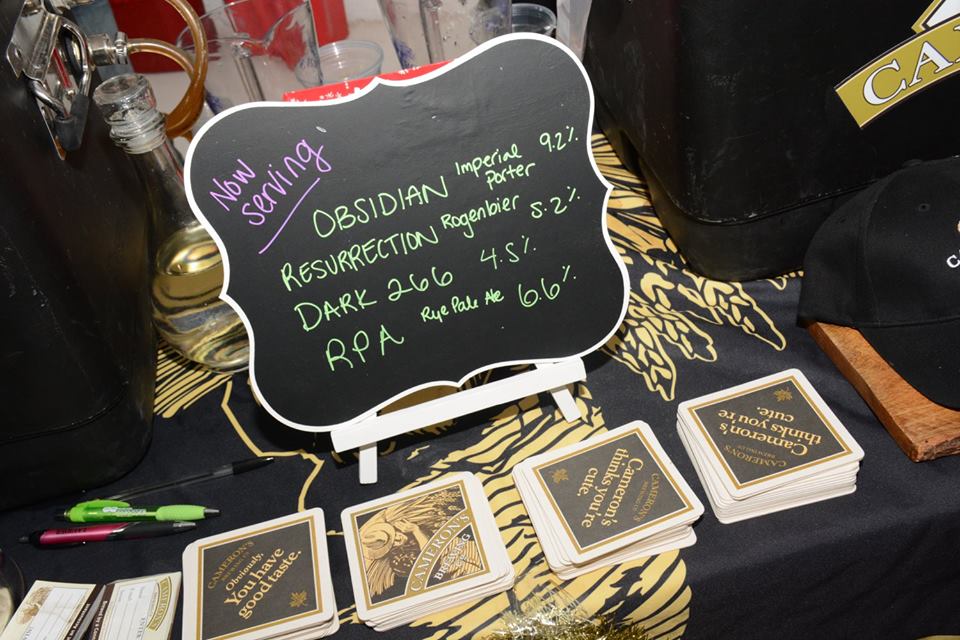 Now
serving
OBSIDIAN Imperial
Porter 9.2%
RESURRECTION Rogenbier 5.2%
DARK 266 4.5%
RPA Rye Pale Ale 6.6%
CA
CAMERON'S
Obviously,
You have
good taste.
CAMERON'S
BREWING
CAMERON'S
Cameron's
thinks you're
cute.
CAMERON'S
Cameron's
thinks you're
cute.